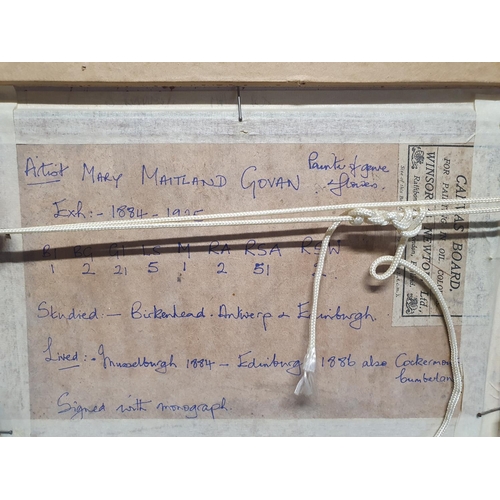 Artist MARY MAITLAND GOVAN
Exh:- 1884 - 1925
GI LS M RA RSA RSW
1 2 21 5 1 2 51
Studied:- Birkenhead. Antwerp & Edinburgh.
Lived:- Musselburgh 1884 - Edinburgh 1886 also
Signed with monograph.
CANVAS BOARD.
FOR PAINTING IN OIL COLOUR
WINSOR & NEWTON, Ltd.,